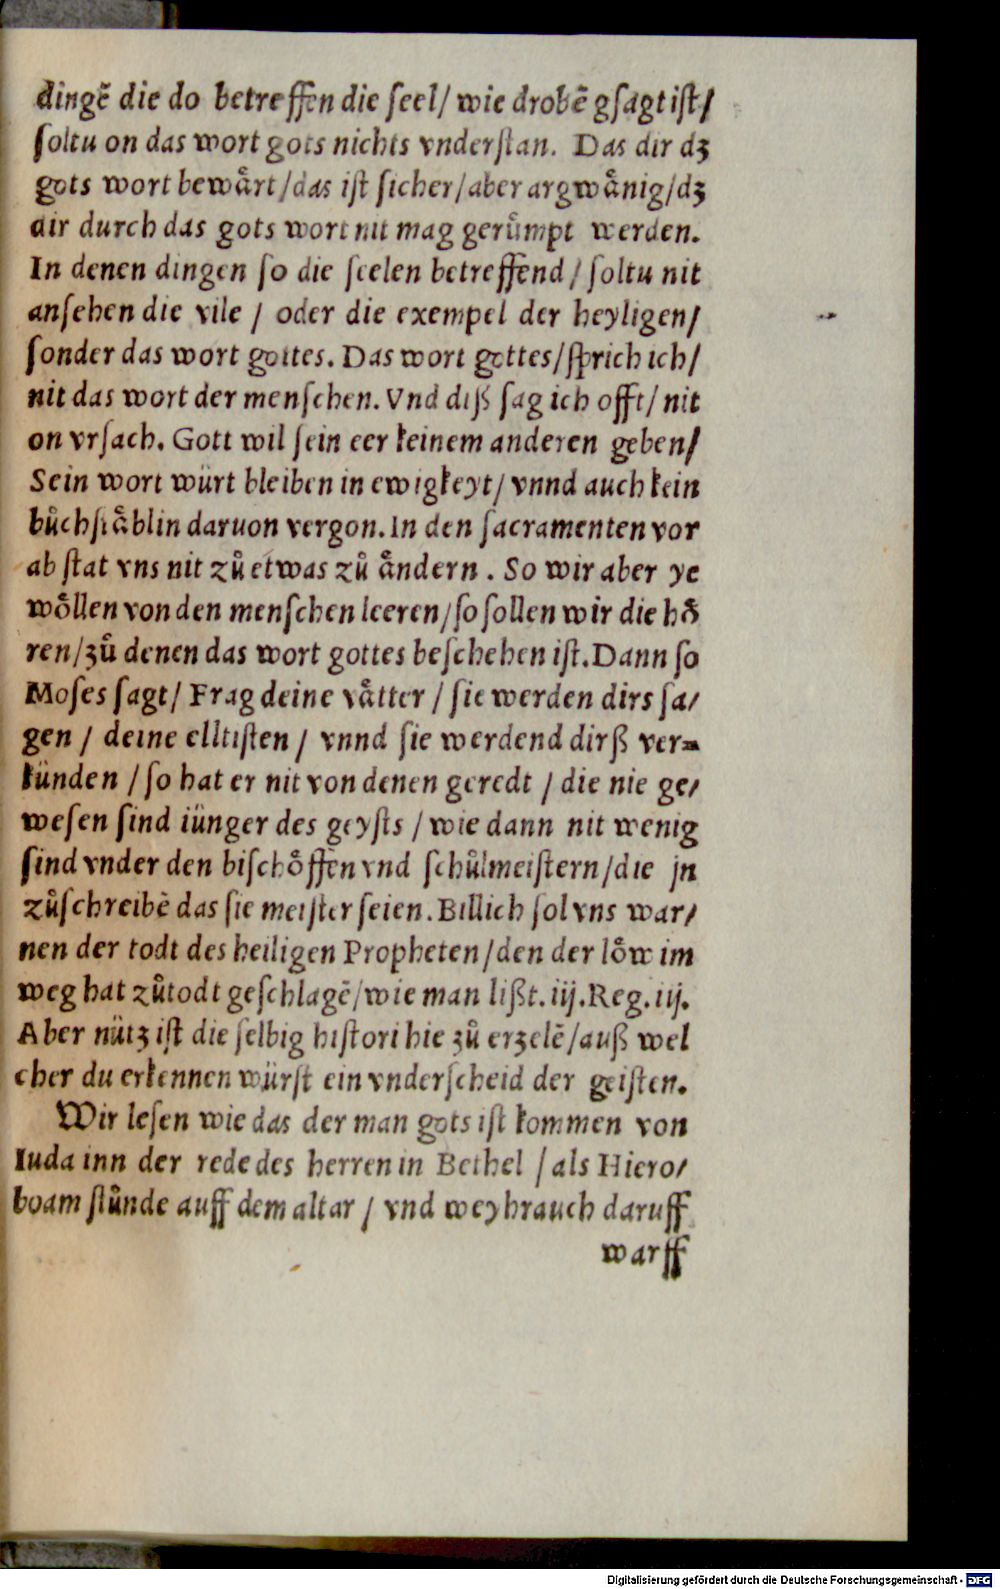 dingẽ die do betreffen die ſeel/ wie drobẽ gſagt iſt/
ſoltu on das wort gots nichts vnderſtan. Das dir dʒ
gots wort bewaͤrt/das iſt ſicher/aber argwaͤnig/dʒ
dir durch das gots wort nit mag geruͤmpt werden.
In denen dingen ſo die ſeelen betreffend/ ſoltu nit
anſehen die vile / oder die exempel der heyligen/
ſonder das wort gottes. Das wort gottes/ſprich ich/
nit das wort der menſchen. Vnd diß ſag ich offt/ nit
on vrſach. Gott wil ſein eer keinem anderen geben/
Sein wort würt bleiben in ewigkeyt/ vnnd auch kein
buͦchſtaͤblin daruon vergon. In den ſacramenten vor
ab ſtat vns nit zuͦ etwas zuͦ aͤndern . So wir aber ye
woͤllen von den menſchen leeren/ſo ſollen wir die hoͤ
ren/ʒuͦ denen das wort gottes beſchehen iſt. Dann ſo
Moſes ſagt/ Frag deine vaͤtter / ſie werden dirs ſa/
gen / deine elltiſten / vnnd ſie werdend dirß ver-
künden / ſo hat er nit von denen geredt / die nie ge/
weſen ſind iünger des geyſts / wie dann nit wenig
ſind vnder den biſchoͤffen vnd ſchuͦlmeiſtern/die jn
zuͦſchreibẽ das ſie meiſter ſeien. Billich ſol vns war/
nen der todt des heiligen Propheten/den der loͤw im
weg hat zuͦtodt geſchlagẽ/wie man lißt. iij. Reg. iij.
Aber nütʒ iſt die ſelbig hiſtori hie ʒuͦ erʒelẽ/auß wel
cher du erkennen würſt ein vnderſcheid der geiſten.
Wir leſen wie das der man gots iſt kommen von
Iuda inn der rede des herren in Bethel / als Hiero/
boam ſtuͦnde auff dem altar / vnd weyhrauch daruff
warff
Digitalisierung gefördert durch die Deutsche Forschungsgemeinschaft - DFG